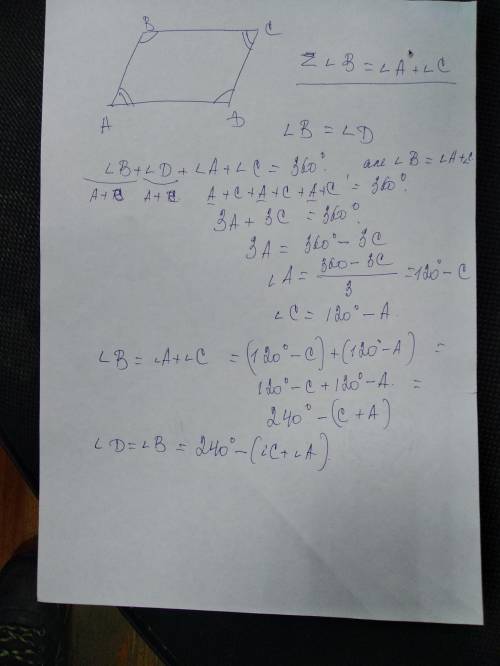 B C
A D
Σ ∠B = ∠A + ∠C
∠B = ∠D
∠B + ∠D + ∠A + ∠C = 360° але ∠B = ∠A+∠C
A+C A+C A + C + A + C + A + C = 360°
3A + 3C = 360°
3A = 360° - 3C
∠A = (360 - 3C)/3 = 120° - C
∠C = 120° - A
∠B = ∠A + ∠C = (120° - C) + (120° - A) =
120° - C + 120° - A =
240° - (C + A)
∠D = ∠B = 240° - (∠C + ∠A)